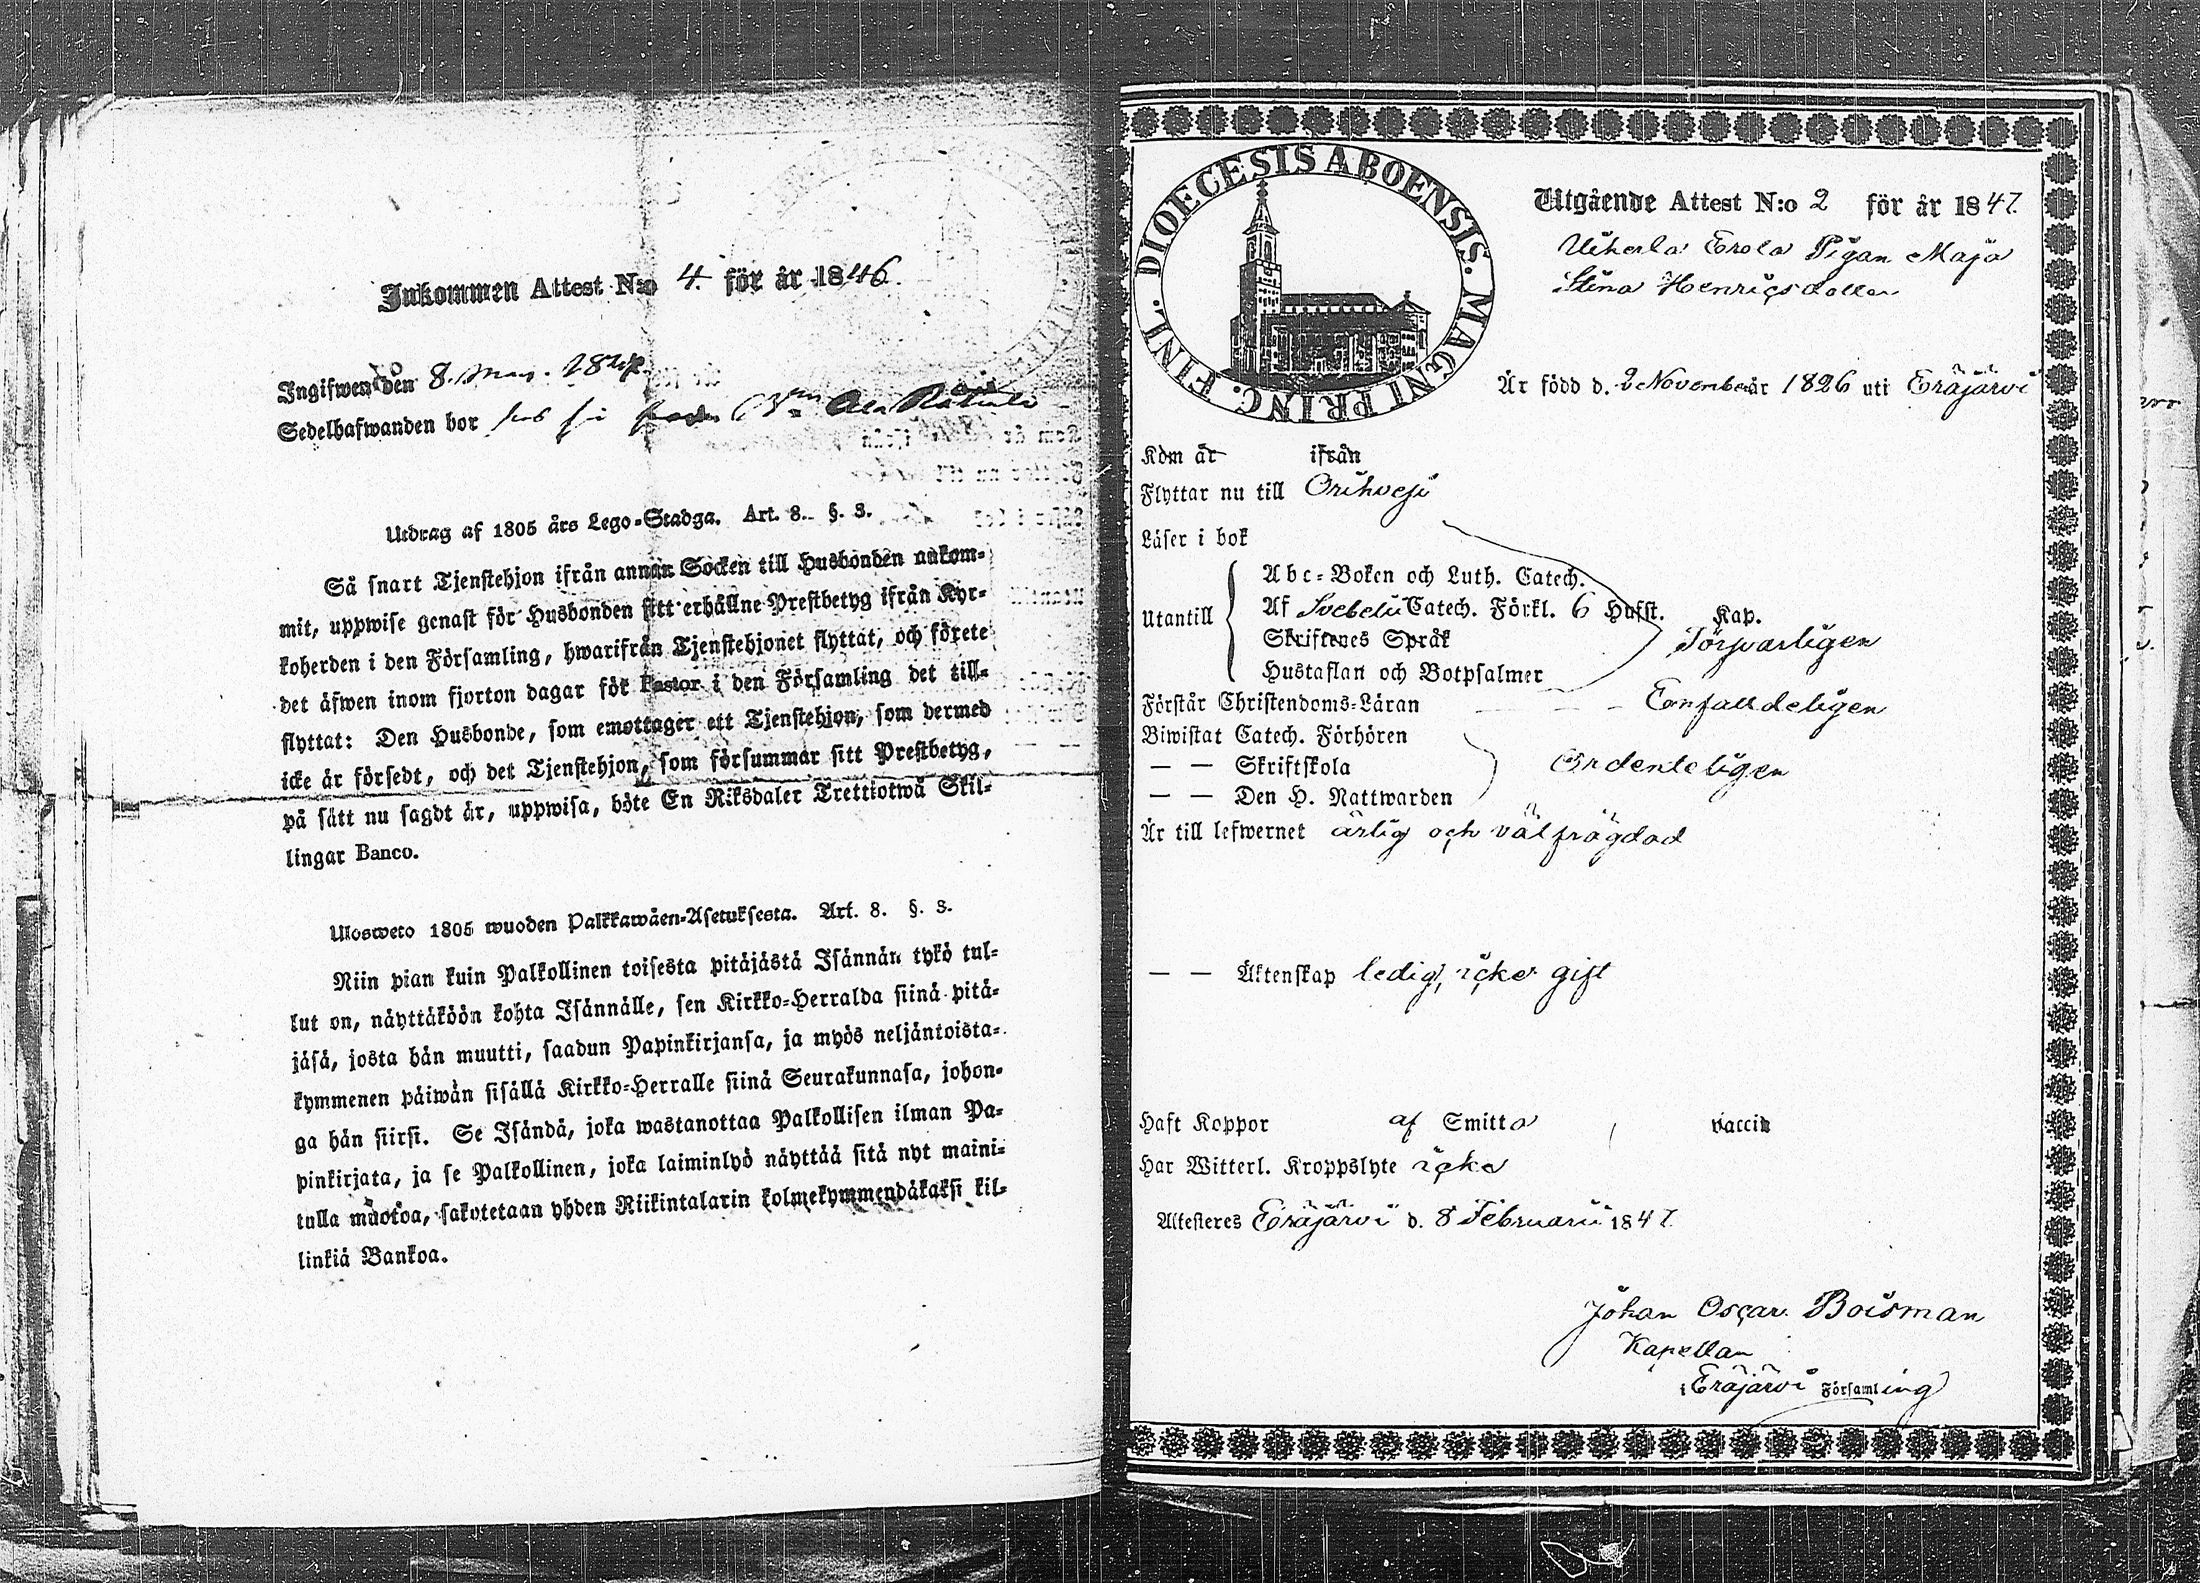 Inkommen Attest N:o 4 för år 1846.
Ingifwen den 8. 
Sedelhafwanden bor hos
Utdrag af 1805 års Lego-Stadga. Art. 8. §. 3.
Så snart Tjenstehjon ifrån annan Socken till Husbonden ankom-
mit, uppwise genast för Husbonden sitt erhållne Prestbetyg ifrån Kyr-
koherden i den Församling, hwarifrån Tjenstehjonet flyttat, och förete
det äfwen inom fjorton dagar för Pastor i den Församling det till-
flyttat: Den Husbonde, som emottager ett Tjenstehjon, som dermed
icke är försedt, och det Tjenstehjon, som försummar sitt Prestbetyg,
på sätt nu sagdt är, uppwisa, böte En Riksdaler Trettiotwå Skil-
lingar Banco.
Ulosweto 1805 wuoden Palkkawäen-Asetuksesta. Art. 8. §. 3.
Niin pian kuin Palkollinen toisesta pitäjästä Isännän tykö tul-
lut on, näyttäköön kohta Isännälle, sen Kirkko-Herralda siinä pitä-
jäsä, josta hän muutti, saadun Papinkirjansa, ja myös neljäntoista-
kymmenen päiwän sisällä Kirkko-Herralle siinä Seurakunnasa, johon-
ga hän siirsi. Se Isändä, joka wastanottaa Palkollisen ilman Pa-
pinkirjata, ja se Palkollinen, joka laiminlyö näyttää sitä nyt maini-
tulla muotoa, sakotetaan yhden Riikintalarin kolmekymmendäkaksi kil-
linkiä Bankoa.
DIOECESIS ABOENSIS. MAGNI PRINC. FINL.
Utgående Attest N:o 2 för år 1847.
Uiherla Erola Pigan Maja
Stina Henricsdotter
Är född d. 2 November år 1826 uti Eräjärvi
Kom år ifrån
Flyttar nu till Orihvesi
Läser i bok
Utantill
Abc-Boken och Luth. Catech.
Af Svebelii Catech. Förkl. 6 Hufst. Kap.
Skriftenes Språk Försvarligen
Hustaflan och Botpsalmer
Förstår Christendoms-Läran — — — Enfalldeligen
Biwistat Catech. Förhören
— — Skriftskola Ordenteligen
— — Den H. Nattwarden
Är till lefwernet ärlig och välfrägdad
— — Äktenskap ledig, icke gift
Haft Koppor af Smitta, vaccin
Har Witterl. Kroppslyte icke
Attesteres Eräjärvi d. 8 Februarii 1847.
Johan Oscar Boisman
Kapellan
i Eräjärvi Församling